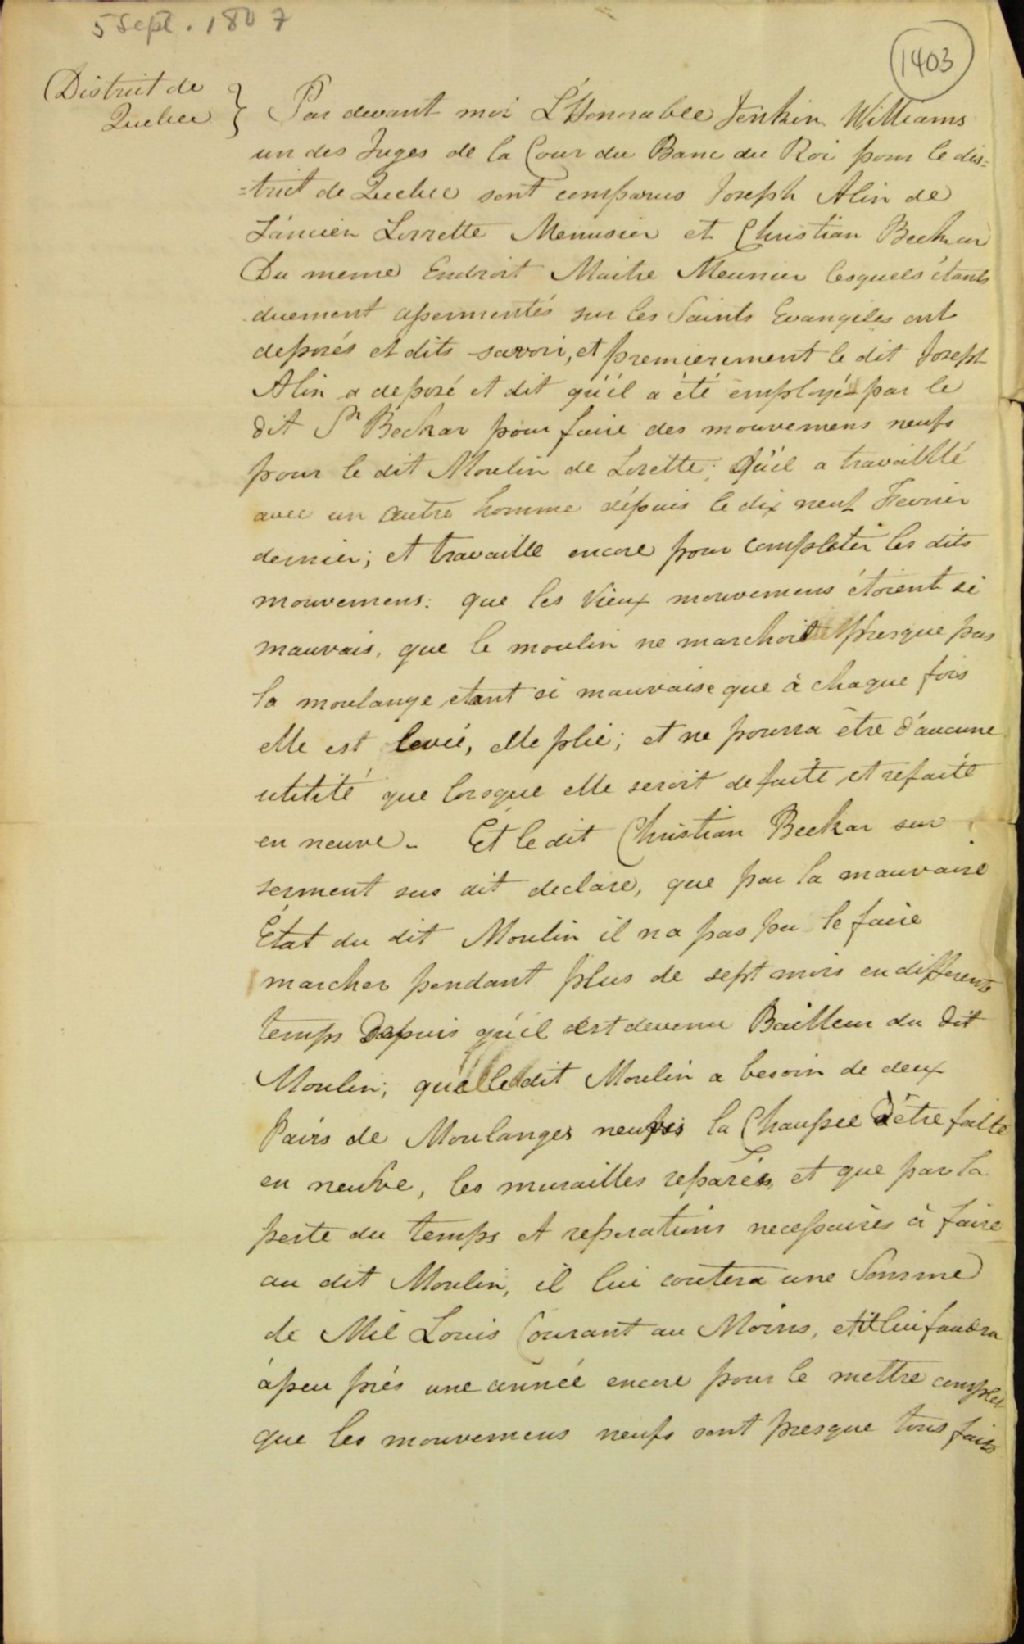 5 Sept. 1807
1403
District de
Quebec } Par devant moi L'Honorable Jenkin Williams
un des Juges de la Cour du Banc du Roi pour le dis=
=trict de Quebec sont comparus Joseph Alin de
L'ancien Lorrette Menusier et Christian Beckar
Du meme Endroit Maitre Meunier lesquels étants
duement assermentés sur les Saints Evangiles ont
deposés et dits savoir, et premierement le dit Joseph
Alin a deposé et dit qu'il a été employé par le
dit Sr Beckar pour faire des mouvemens neufs
pour le dit Moulin de Lorette; Qu'il a travaillé
avec un autre homme dépuis le dix neuf Fevrier
dernier; et travaille encore pour completer les dits
mouvemens: que les Vieux mouvemens étoient si
mauvais, que le moulin ne marchoit presque pas
la moulange etant si mauvaise que à chaque fois
elle est levée, elle plie; et ne pourra être d'aucune
utilité que lorsque elle seroit defaite et refaite
en neuve. Et le dit Christian Beckar sur
serment sus dit declare, que par la mauvaise
État du dit Moulin il na pas pu le faire
marcher pendant plus de sept mois en differents
temps Depuis qu'il est devenu Bailleur du dit
Moulin; que le dit Moulin a besoin de deux
Pairs de Moulanges neufs la Chaussee d'être faite
en neufve, les murailles reparés, et que par la
perte du temps et reparations necessaires à faire
au dit Moulin, il lui coutera une Somme
de Mil Louis Courant au Moins, et il lui faudra
àpeu près une année encore pour le mettre complet
que les mouvemens neufs sont presque tous faits